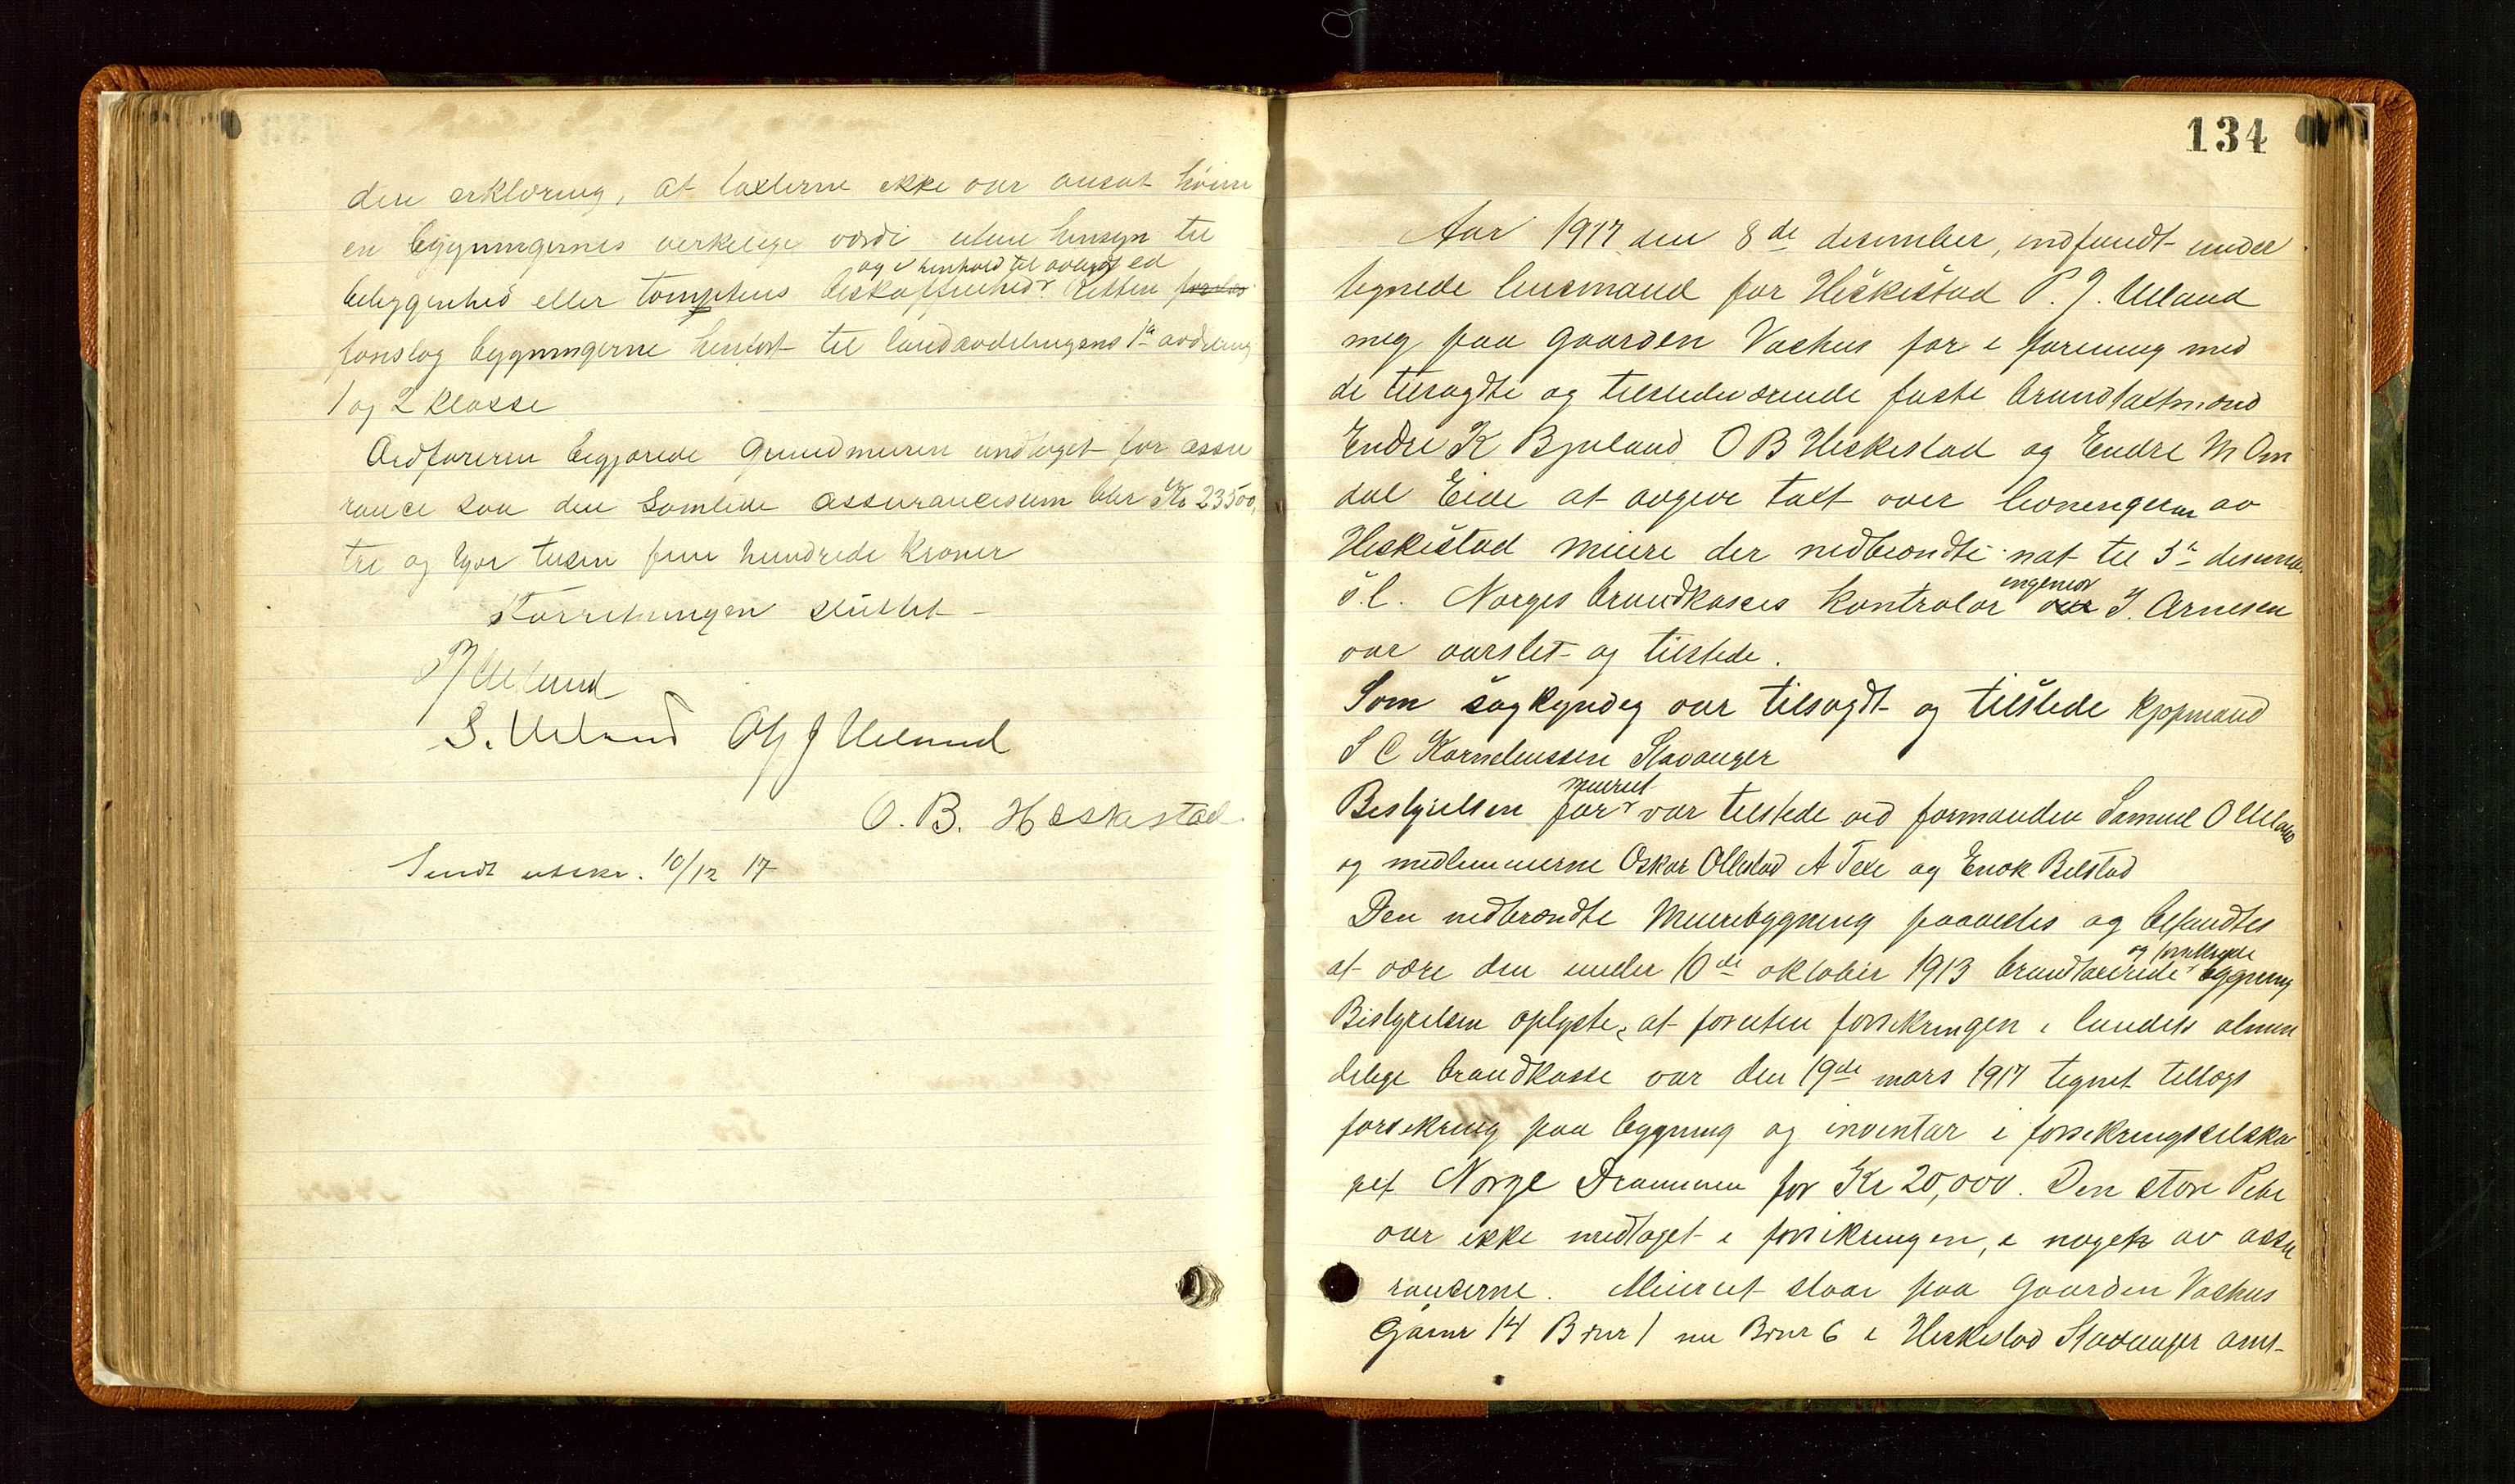 den erklæring, at taxterne ikke var ansat høiere
en bygningernes verkelige værdi uten hensyn til
beliggenhed eller tomptens beskaffenhed og i henhold til avlagt ed. Retten foreslo
foreslog bygningerne henført til landavdelingens 1te avdeling
1 og 2 klasse
Ordføreren begjærede Grundmuren undtaget for assu
rance saa den samlede assurancesum blir Kr 23500,
tre og tyve tusen fem hundrede kroner
Forretningen sluttet
P J Ueland
S. Ueland Ole J Ueland
O. B. Heskestad
Sendt utskr. 10/12 17
134
Aar 1917 den 8de desember, indfandt under
tegnede lensmand for Heskestad P. J. Ueland
meg paa gaarden Vashus for i forening med
de tilsagdte og tilstedeværende faste brandtaxtmænd
Endre K Bjuland O B Heskestad og Endre M Om
dal Eide at avgive taxt over levningerne av
Heskestad meieri der nedbrændte nat til 3te desem.
s.l. Norges brandkasses kontrolør ingeniør var J. Arnesen
var varslet og tilstede.
Som sagkyndig var tilsagdt og tilstede kjøpmand
S C Korneliussen Stavanger
Bestyrelsen for meieriet var tilstede ved formanden Samuel O Ueland
og medlemmerne Oskar Ollestad A Texe og Enok Belstad
Den nedbrændte Meieribygning paavistes og befandtes
at være den under 10de oktober 1913 brandtaxerede og forsikrede bygning
Bestyrelsen oplyste, at foruten forsikringen i landets almin
delige brandkasse var den 19de mars 1917 tegnet tillægs
forsikring paa bygning og inventar i forsikringsselska
pet Norge Drammen for Kr 20,000. Den store Pibe
var ikke medtaget i forsikringen, i nogen av assu
rancerne. Meieriet staar paa Gaarden Vashus
Gaardnr 14 Brnr 1 nu Brnr 6 i Heskestad Stavanger amt